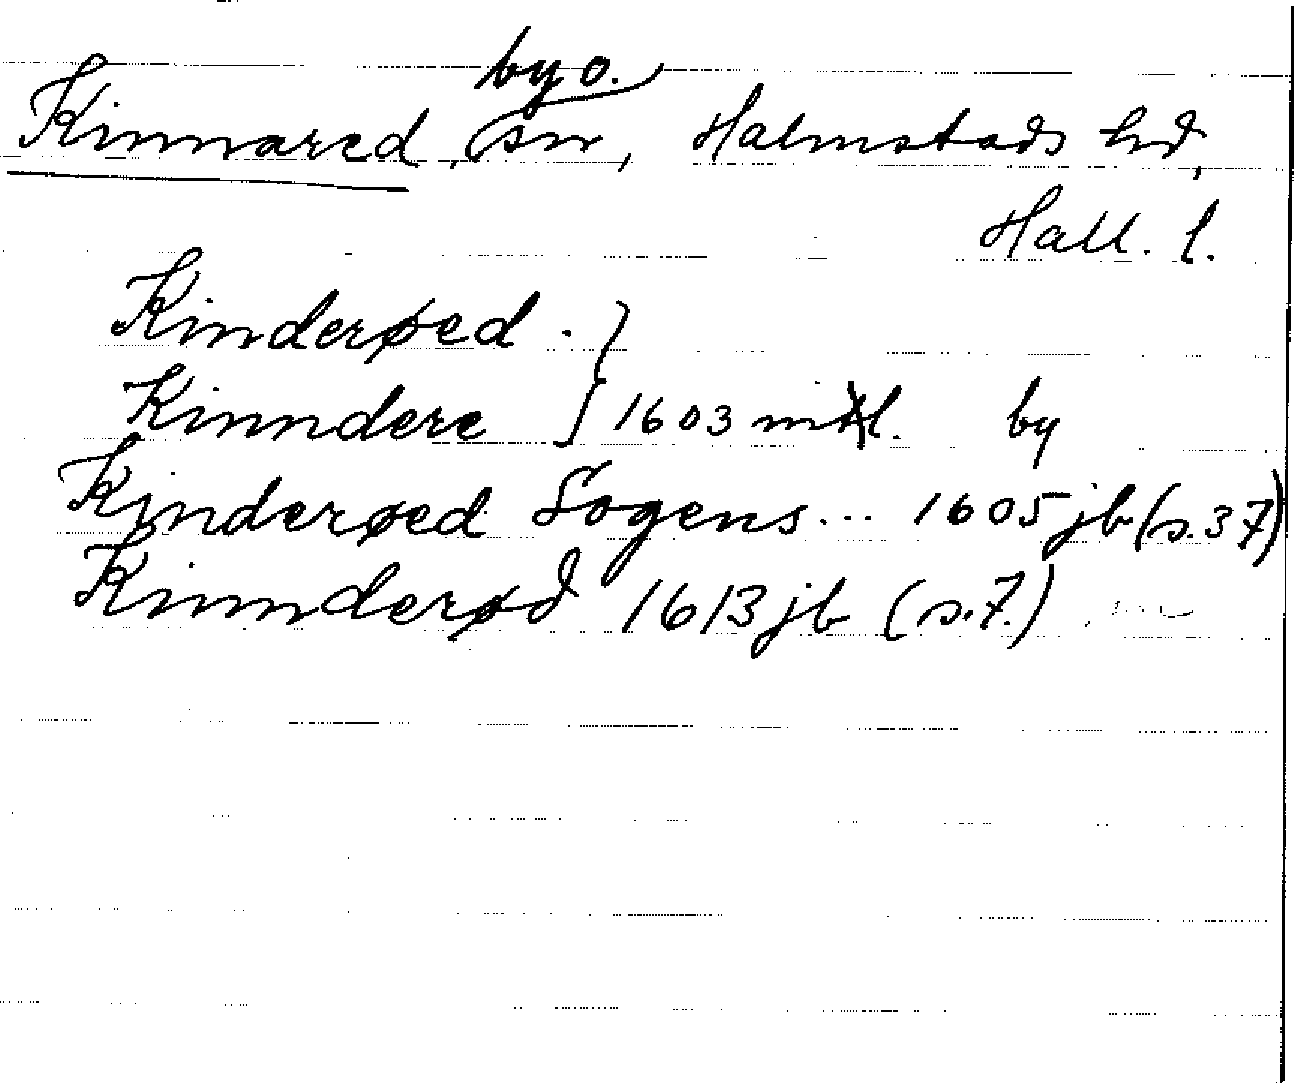 by o.
Kinnared, sn, Halmstads hd,
Hall. l.
Kinderøed .
Kinndere } 1603 mtl. by
Kinderøed Sogens... 1605 jb (s. 37)
Kinnderød 1613 jb (s. 7.)